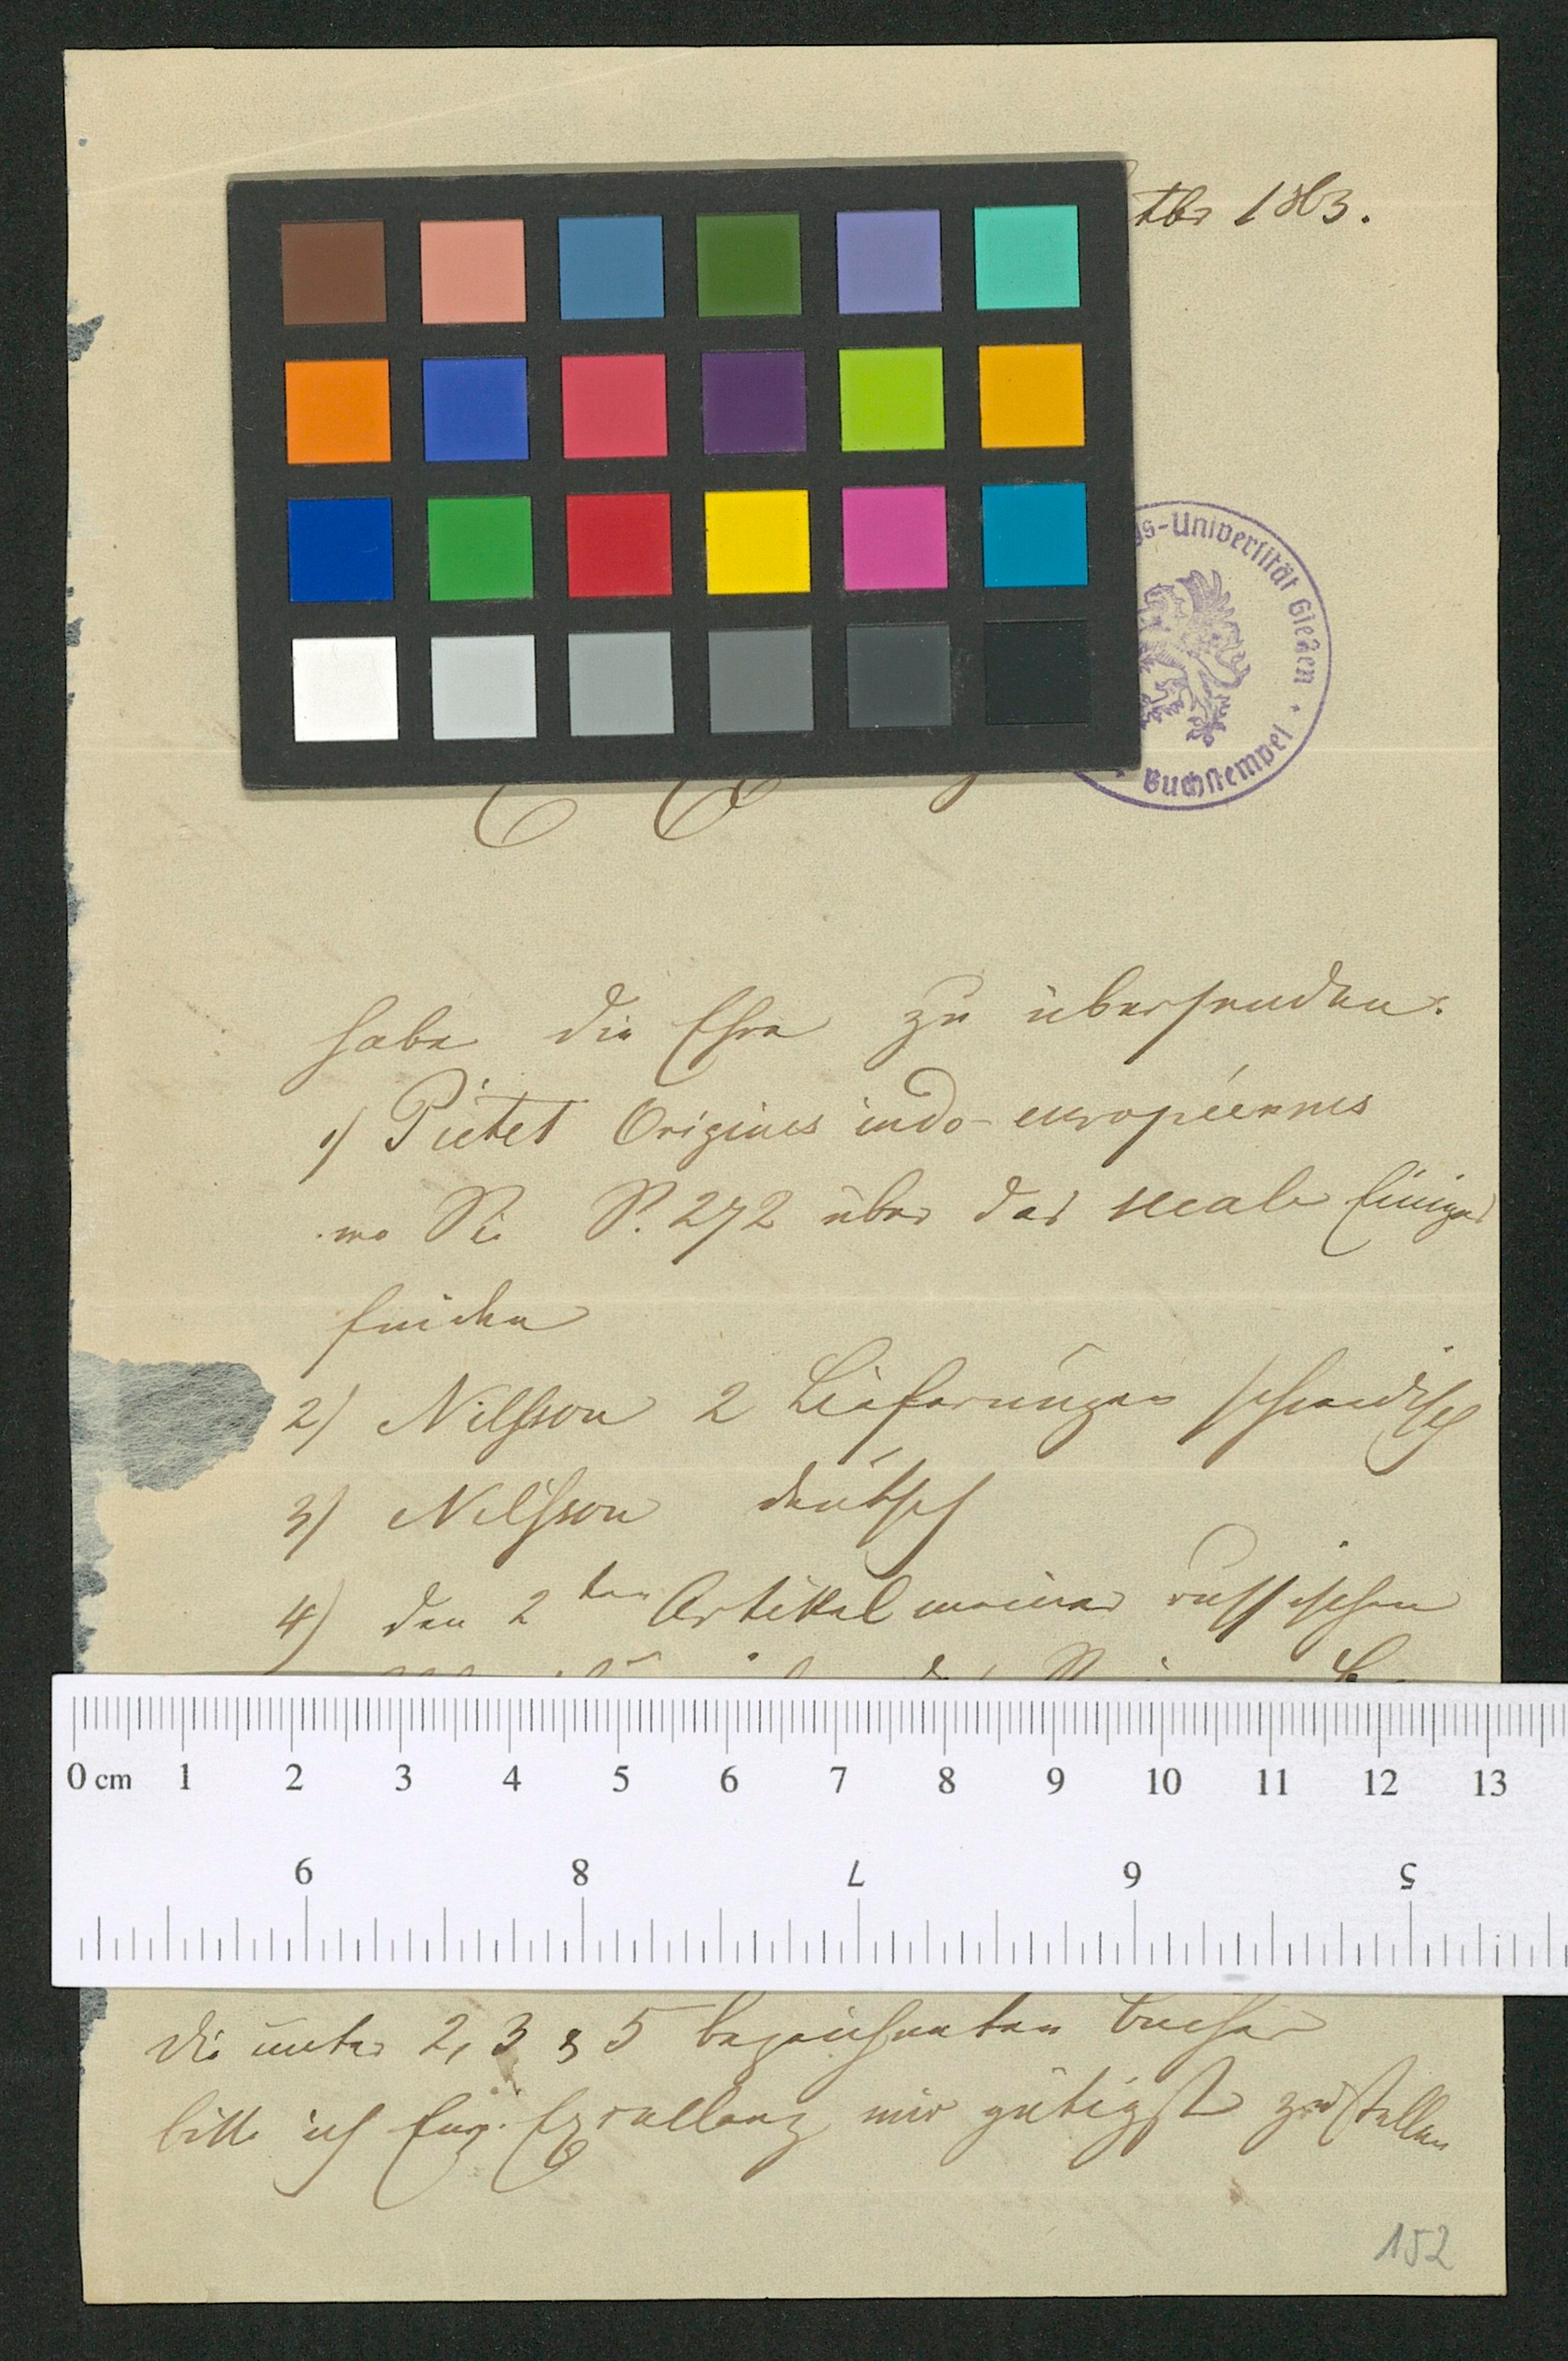 tbr 1863.
s-Universität Gießen
Buchstempel
habe die Ehre zu übersenden:
1) Pictet Origines indo-européennes
wo Sie S. 272 über das Einiges
finden
2) Nilsson 2 Lieferungen schwedisch
3) Nilsson deutsch
4) den 2ten Artikel meiner russischen
0 cm 1 2 3 4 5 6 7 8 9 10 11 12 13
9 8 7 6 5
die unter 2, 3 & 5 bezeichneten Bücher
bitte ich Euer Excellenz mir gütigst zuzustellen
152